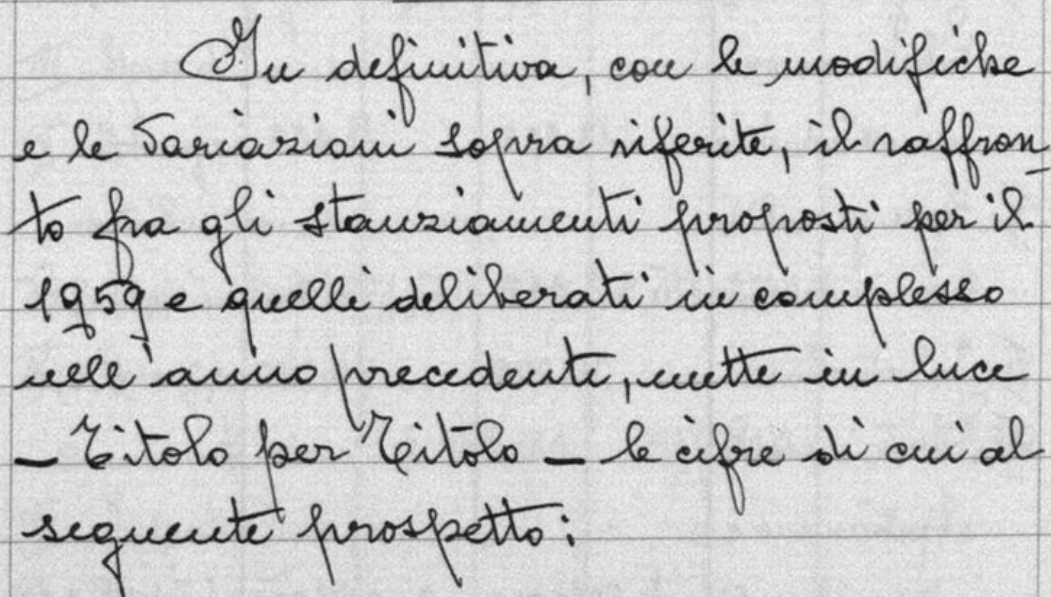 In definitiva, con le modifiche
e le Variazioni sopra riferite, il raffron-
to fra gli stanziamenti proposti per il
1959 e quelli deliberati in complesso
nell'anno precedente, mette in luce
- Titolo per Titolo - le cifre di cui al
seguente prospetto: